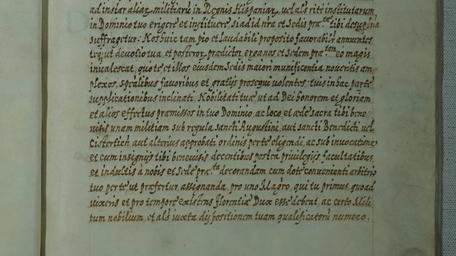 ad instar aliar. militiarū in Regnis Hispaniar. ut alis rite institutarum,
in Dominio tuo erigere et instituere si ad id nra et Sedis præ.tæ tibi desuper
suffragetur. Nos huic tam pio et laudabili proposito favorabiliter annuentes
et devotio tua, et posteror. prædictor. erga nos et Sedem præ.tam eo magis
invalescat, quo te et illos eiusdem Sedis maiori munificentia noveritis am
plexos, specialibus favoribus et gratijs prosequi volentes, tuis in hac parte
supplicationibus inclinati. Nobilitati tuæ, ut ad Dei honorem et gloriam
et alios effectus præmissos in tuo Dominio, ac loco et æde sacra tibi bene
visis unam militiam sub regula sancti Augustini, aut sancti Benedicti, vel
Cistercien aut alterius approbati ordinis per te eligendi, ac sub invocatione
et cum insignijs tibi benevisis decentibus postea privilegijs facultatibus,
et indultis a nobis et Sede præ.ta decorandam cum dote convenienti arbitrio
tuo per te, ut præfertur, assignanda, pro uno Magro, qui tu primus, quoad
vixeris et pro tempore existens florentiæ Dux esse debeat, ac certo Mili
tum nobilium, et alr. iuxta dispositionem tuam qualificator. numero,